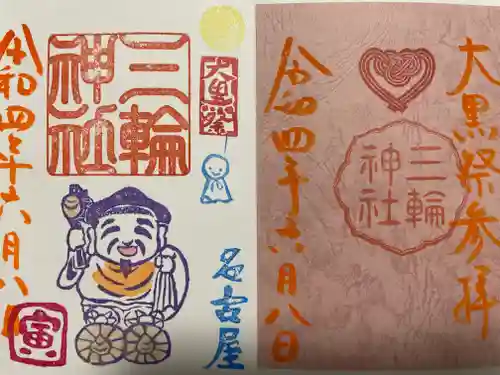 大黒祭
名古屋
三輪
神社
令和四年六月八日
寅
大黒祭参拝
三輪
神社
令和四年六月八日